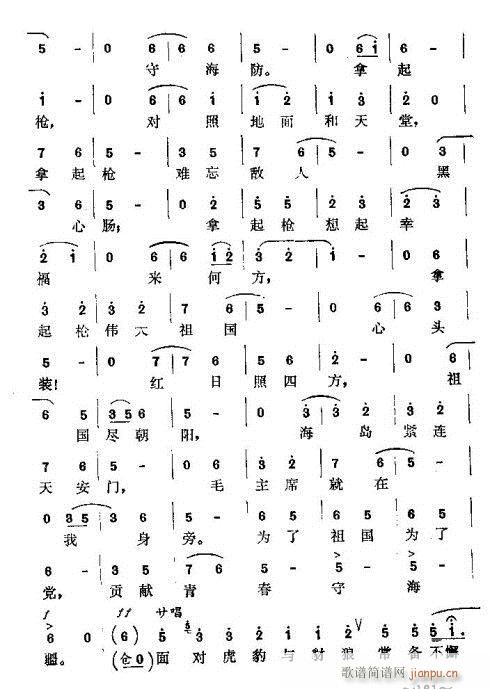 5 - | 0 6 | 6 6 | 5 - | 0 6 i | 6
守 海 防。 拿 起
i - | 0 2 | 2 i | i 2 | i 3 | i 2
枪, 对 照 地 面 和 天 堂,
7 6 | 5 - | 3 5 | 7 6 | 6 - | 0 3
拿 起 枪 难 忘 敌 人 黑
3 6 | 5 - | 0 2 | 5 5 | i 2 | 0 2
心 肠; 拿 起 枪 想 起 幸
2 i | 0 7 | 6 6 | i 2 | 3 2 | i - | 0 6
福 来 何 方, 拿
3 2 | i 2 | 7 7 | 6 5 | - | 0 6 | 6 3
起 枪 伟 大 祖 国 心 头
5 - | 0 7 | 7 6 | 5 6 | 5 - | 0 6
装! 红 日 照 四 方, 祖
6 5 | 3 5 6 | 5 - | 0 3 | 3 2 | 2 2
国 尽 朝 阳, 海 岛 紧 连
7 6 | 5 - | 0 2 | 3 2 | 7 6 | 5 -
天 安 门, 毛 主 席 就 在
0 3 5 | 3 2 | i - | 6 5 | 6 5 | 6 5
我 身 旁。 为 了 祖 国 为 了
6 - | 3 5 | 7 6 | 2 - | 5 - | 5 -
党, 贡 献 青 春 守 海
f ff サ唱
6 0 (6) 5 2 3 2 3 2 3 2 5 i -
疆。 (仓0) 面 对 虎 豹 与 豺 狼 常 备 不 懈
歌谱简谱网
jianpu.cn
181